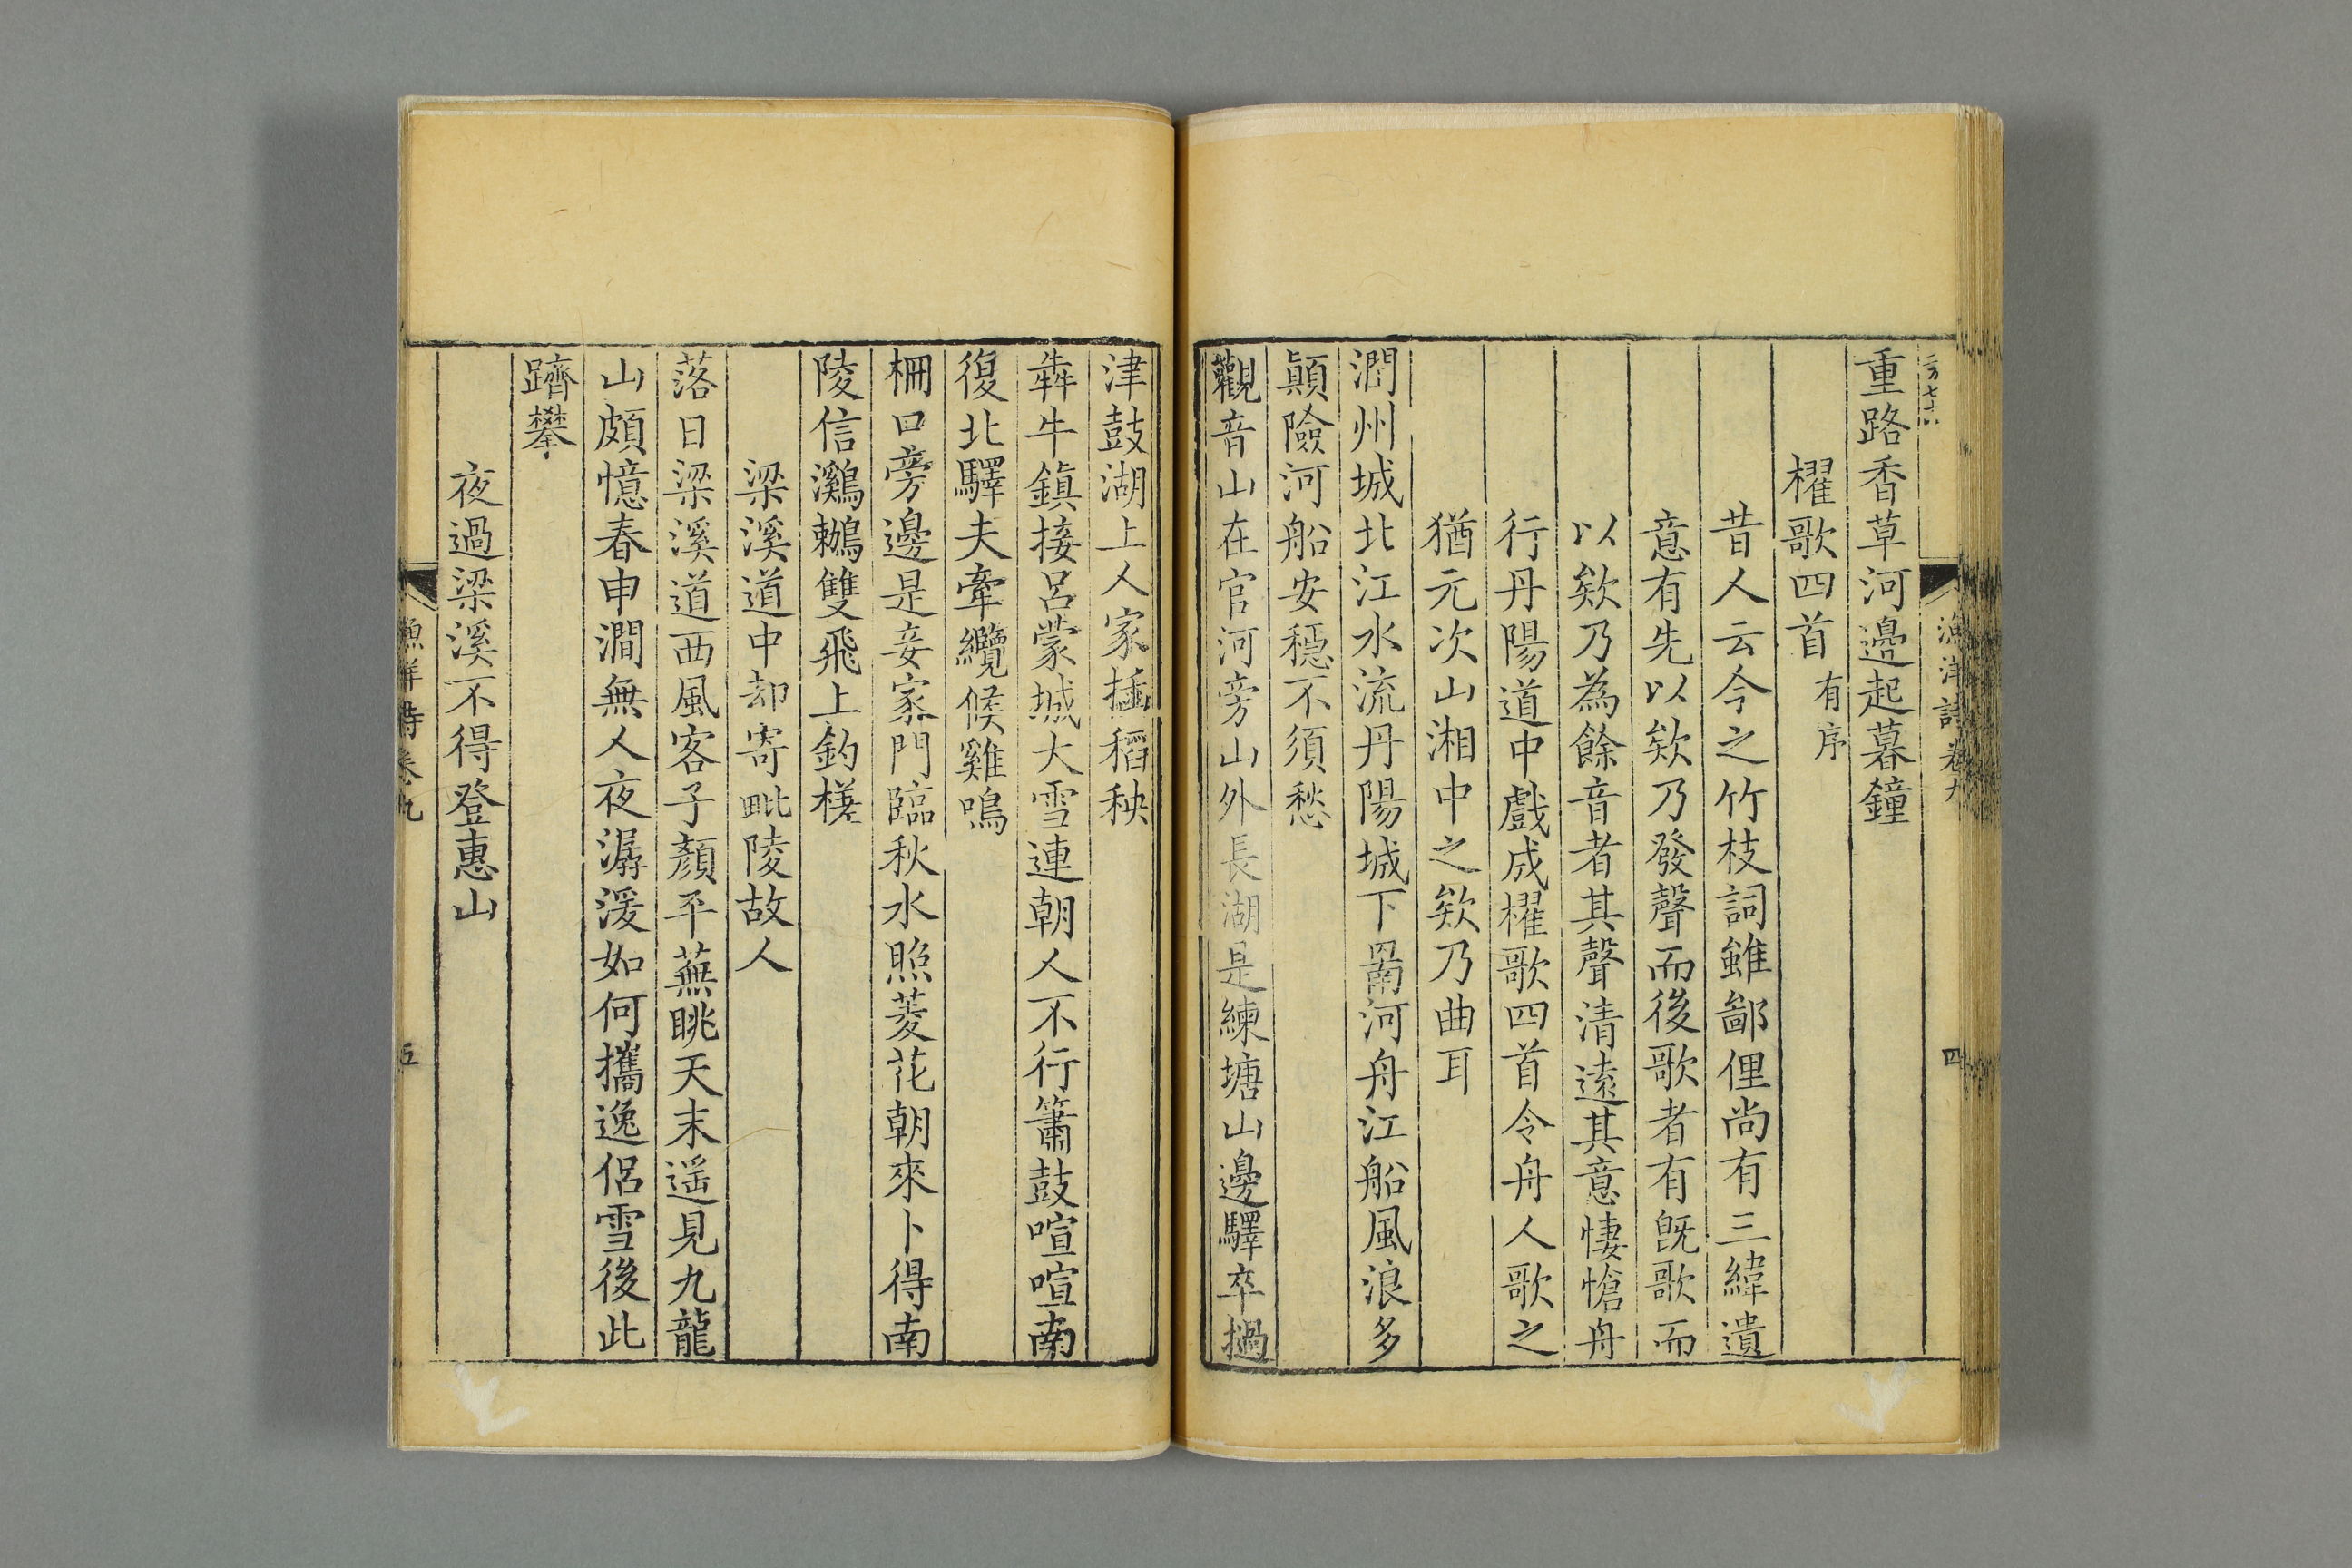 重路香草河邊起暮鐘
櫂歌四首有序
昔人云今之竹枝詞雖鄙俚尚有三緯遺
意有先以欸乃發聲而後歌者有旣歌而
以欸乃為餘音者其聲清遠其意悽愴舟
行丹陽道中戲成櫂歌四首令舟人歌之
猶元次山湘中之欸乃曲耳
潤州城北江水流丹陽城下罱河舟江船風浪多
顛險河船安穩不須愁
觀音山在官河旁山外長湖是練塘山邊驛卒撾
漁洋詩卷九
四
津鼓湖上人家插稻秧
犇牛鎮接呂蒙城大雪連朝人不行簫鼓喧喧南
復北驛夫牽纜候雞鳴
柵口旁邊是妾家門臨秋水照菱花朝來卜得南
陵信鸂鶒雙飛上釣槎
梁溪道中却寄毗陵故人
落日梁溪道西風客子顏平蕪眺天末遥見九龍
山頗憶春申澗無人夜潺湲如何攜逸侶雪後此
躋攀
夜過梁溪不得登惠山
五